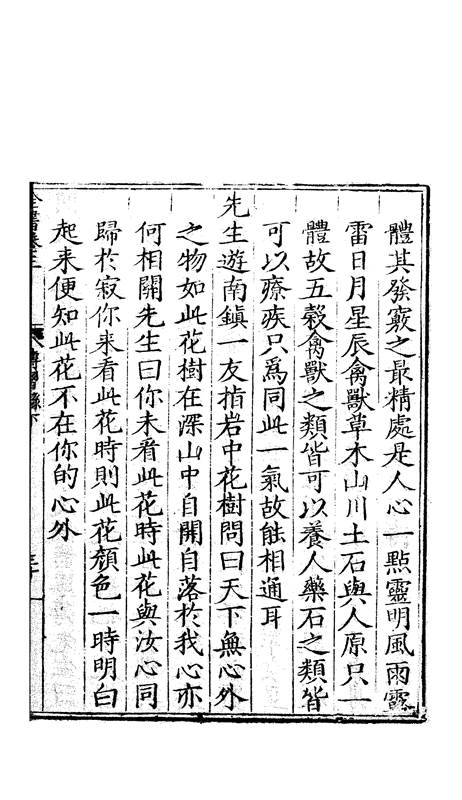 體其發竅之最精處是人心一點靈明風雨露
雷日月星辰禽獸草木山川土石與人原只一
體故五穀禽獸之類皆可以養人藥石之類皆
可以療疾只爲同此一氣故能相通耳
先生遊南鎮一友指岩中花樹問曰天下無心外
之物如此花樹在深山中自開自落於我心亦
何相關先生曰你未看此花時此花與汝心同
歸於寂你来看此花時則此花顏色一時明白
起来便知此花不在你的心外
全書卷三
傳習録下